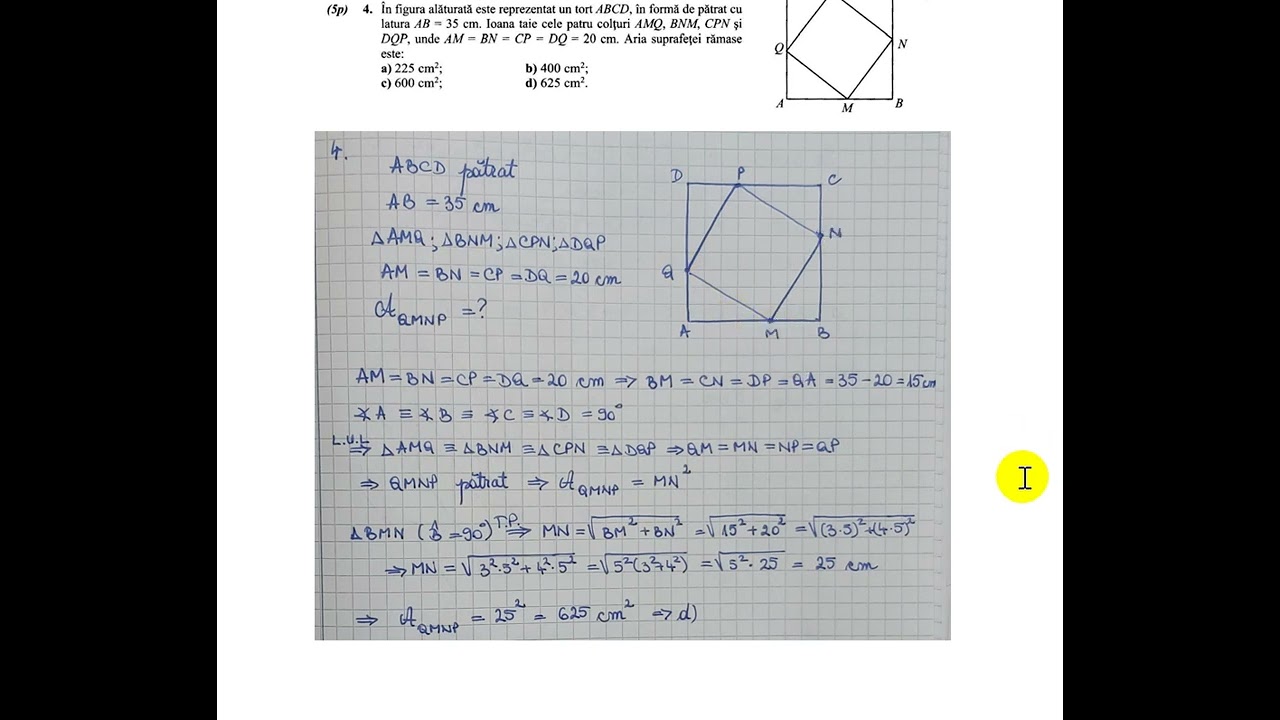 (5p) 4. În figura alăturată este reprezentat un tort ABCD, în formă de pătrat cu
latura AB = 35 cm. Ioana taie cele patru colțuri AMQ, BNM, CPN și
DQP, unde AM = BN = CP = DQ = 20 cm. Aria suprafeței rămase
este:
a) 225 cm²; b) 400 cm²;
c) 600 cm²; d) 625 cm².
Q N
A M B
4.
ABCD pătrat
AB = 35 cm
△AMQ; △BNM; △CPN; △DQP
AM = BN = CP = DQ = 20 cm
𝒜QMNP = ?
D P C
N
Q
A M B
AM = BN = CP = DQ = 20 cm ⇒ BM = CN = DP = QA = 35 - 20 = 15 cm
∢A ≡ ∢B ≡ ∢C ≡ ∢D = 90°
L.U.L ⇒ △AMQ ≡ △BNM ≡ △CPN ≡ △DQP ⇒ QM = MN = NP = QP
⇒ QMNP pătrat ⇒ 𝒜QMNP = MN²
△BMN (B̂ = 90°) T.P. ⇒ MN = √(BM² + BN²) = √(15² + 20²) = √((3·5)² + (4·5)²)
⇒ MN = √(3²·5² + 4²·5²) = √(5²(3² + 4²)) = √(5²·25) = 25 cm
⇒ 𝒜QMNP = 25² = 625 cm² ⇒ d)